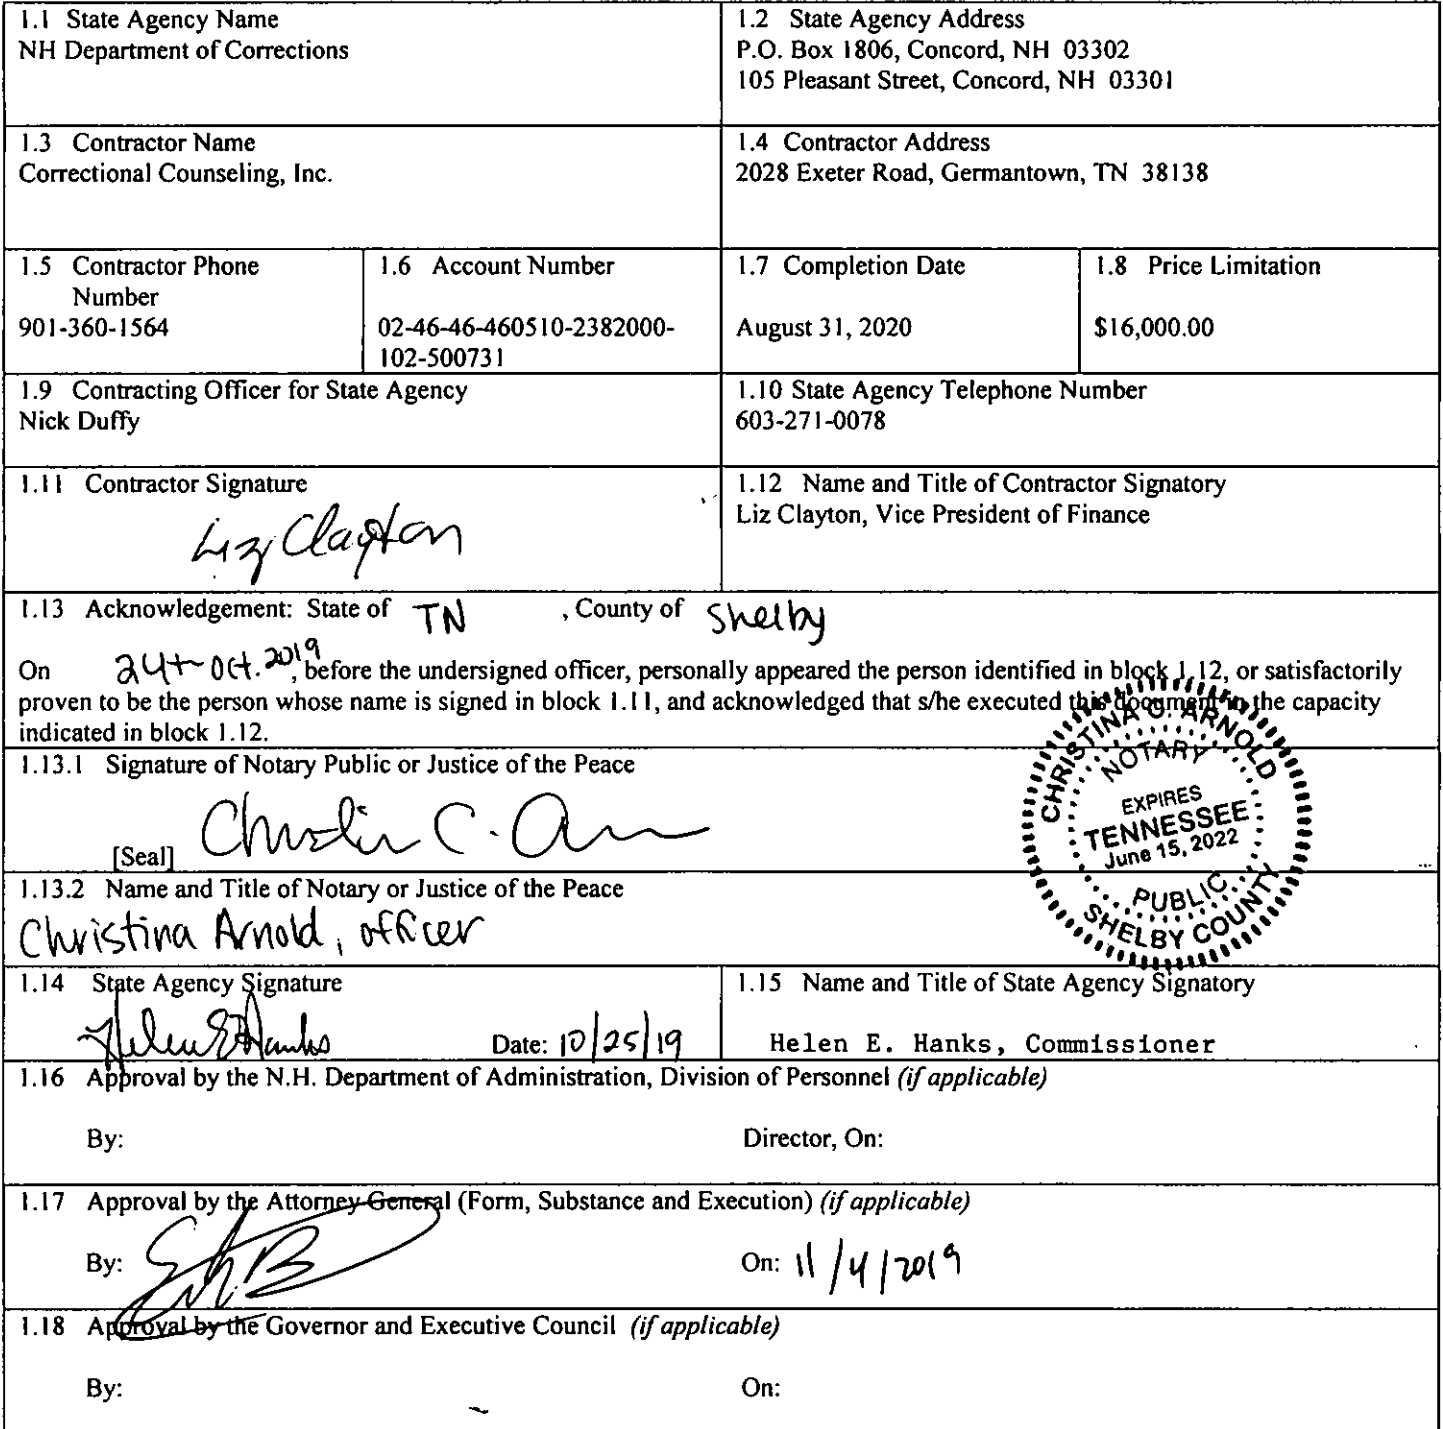 1.1 State Agency Name
NH Department of Corrections
1.2 State Agency Address
P.O. Box 1806, Concord, NH 03302
105 Pleasant Street, Concord, NH 03301
1.3 Contractor Name
Correctional Counseling, Inc.
1.4 Contractor Address
2028 Exeter Road, Germantown, TN 38138
1.5 Contractor Phone
Number
901-360-1564
1.6 Account Number
02-46-46-460510-2382000-
102-500731
1.7 Completion Date
August 31, 2020
1.8 Price Limitation
$16,000.00
1.9 Contracting Officer for State Agency
Nick Duffy
1.10 State Agency Telephone Number
603-271-0078
1.11 Contractor Signature
Liz Clayton
1.12 Name and Title of Contractor Signatory
Liz Clayton, Vice President of Finance
1.13 Acknowledgement: State of TN , County of Shelby
On 24th Oct. 2019, before the undersigned officer, personally appeared the person identified in block 1.12, or satisfactorily
proven to be the person whose name is signed in block 1.11, and acknowledged that s/he executed this document in the capacity
indicated in block 1.12.
1.13.1 Signature of Notary Public or Justice of the Peace
[Seal]
CHRISTINA C. ARNOLD
NOTARY
EXPIRES
TENNESSEE
June 15, 2022
PUBLIC
SHELBY COUNTY
1.13.2 Name and Title of Notary or Justice of the Peace
Christina Arnold, officer
1.14 State Agency Signature
Helen E Hanks Date: 10/25/19
1.15 Name and Title of State Agency Signatory
Helen E. Hanks, Commissioner
1.16 Approval by the N.H. Department of Administration, Division of Personnel (if applicable)
By: Director, On:
1.17 Approval by the Attorney General (Form, Substance and Execution) (if applicable)
By: On: 11/4/2019
1.18 Approval by the Governor and Executive Council (if applicable)
By: On: